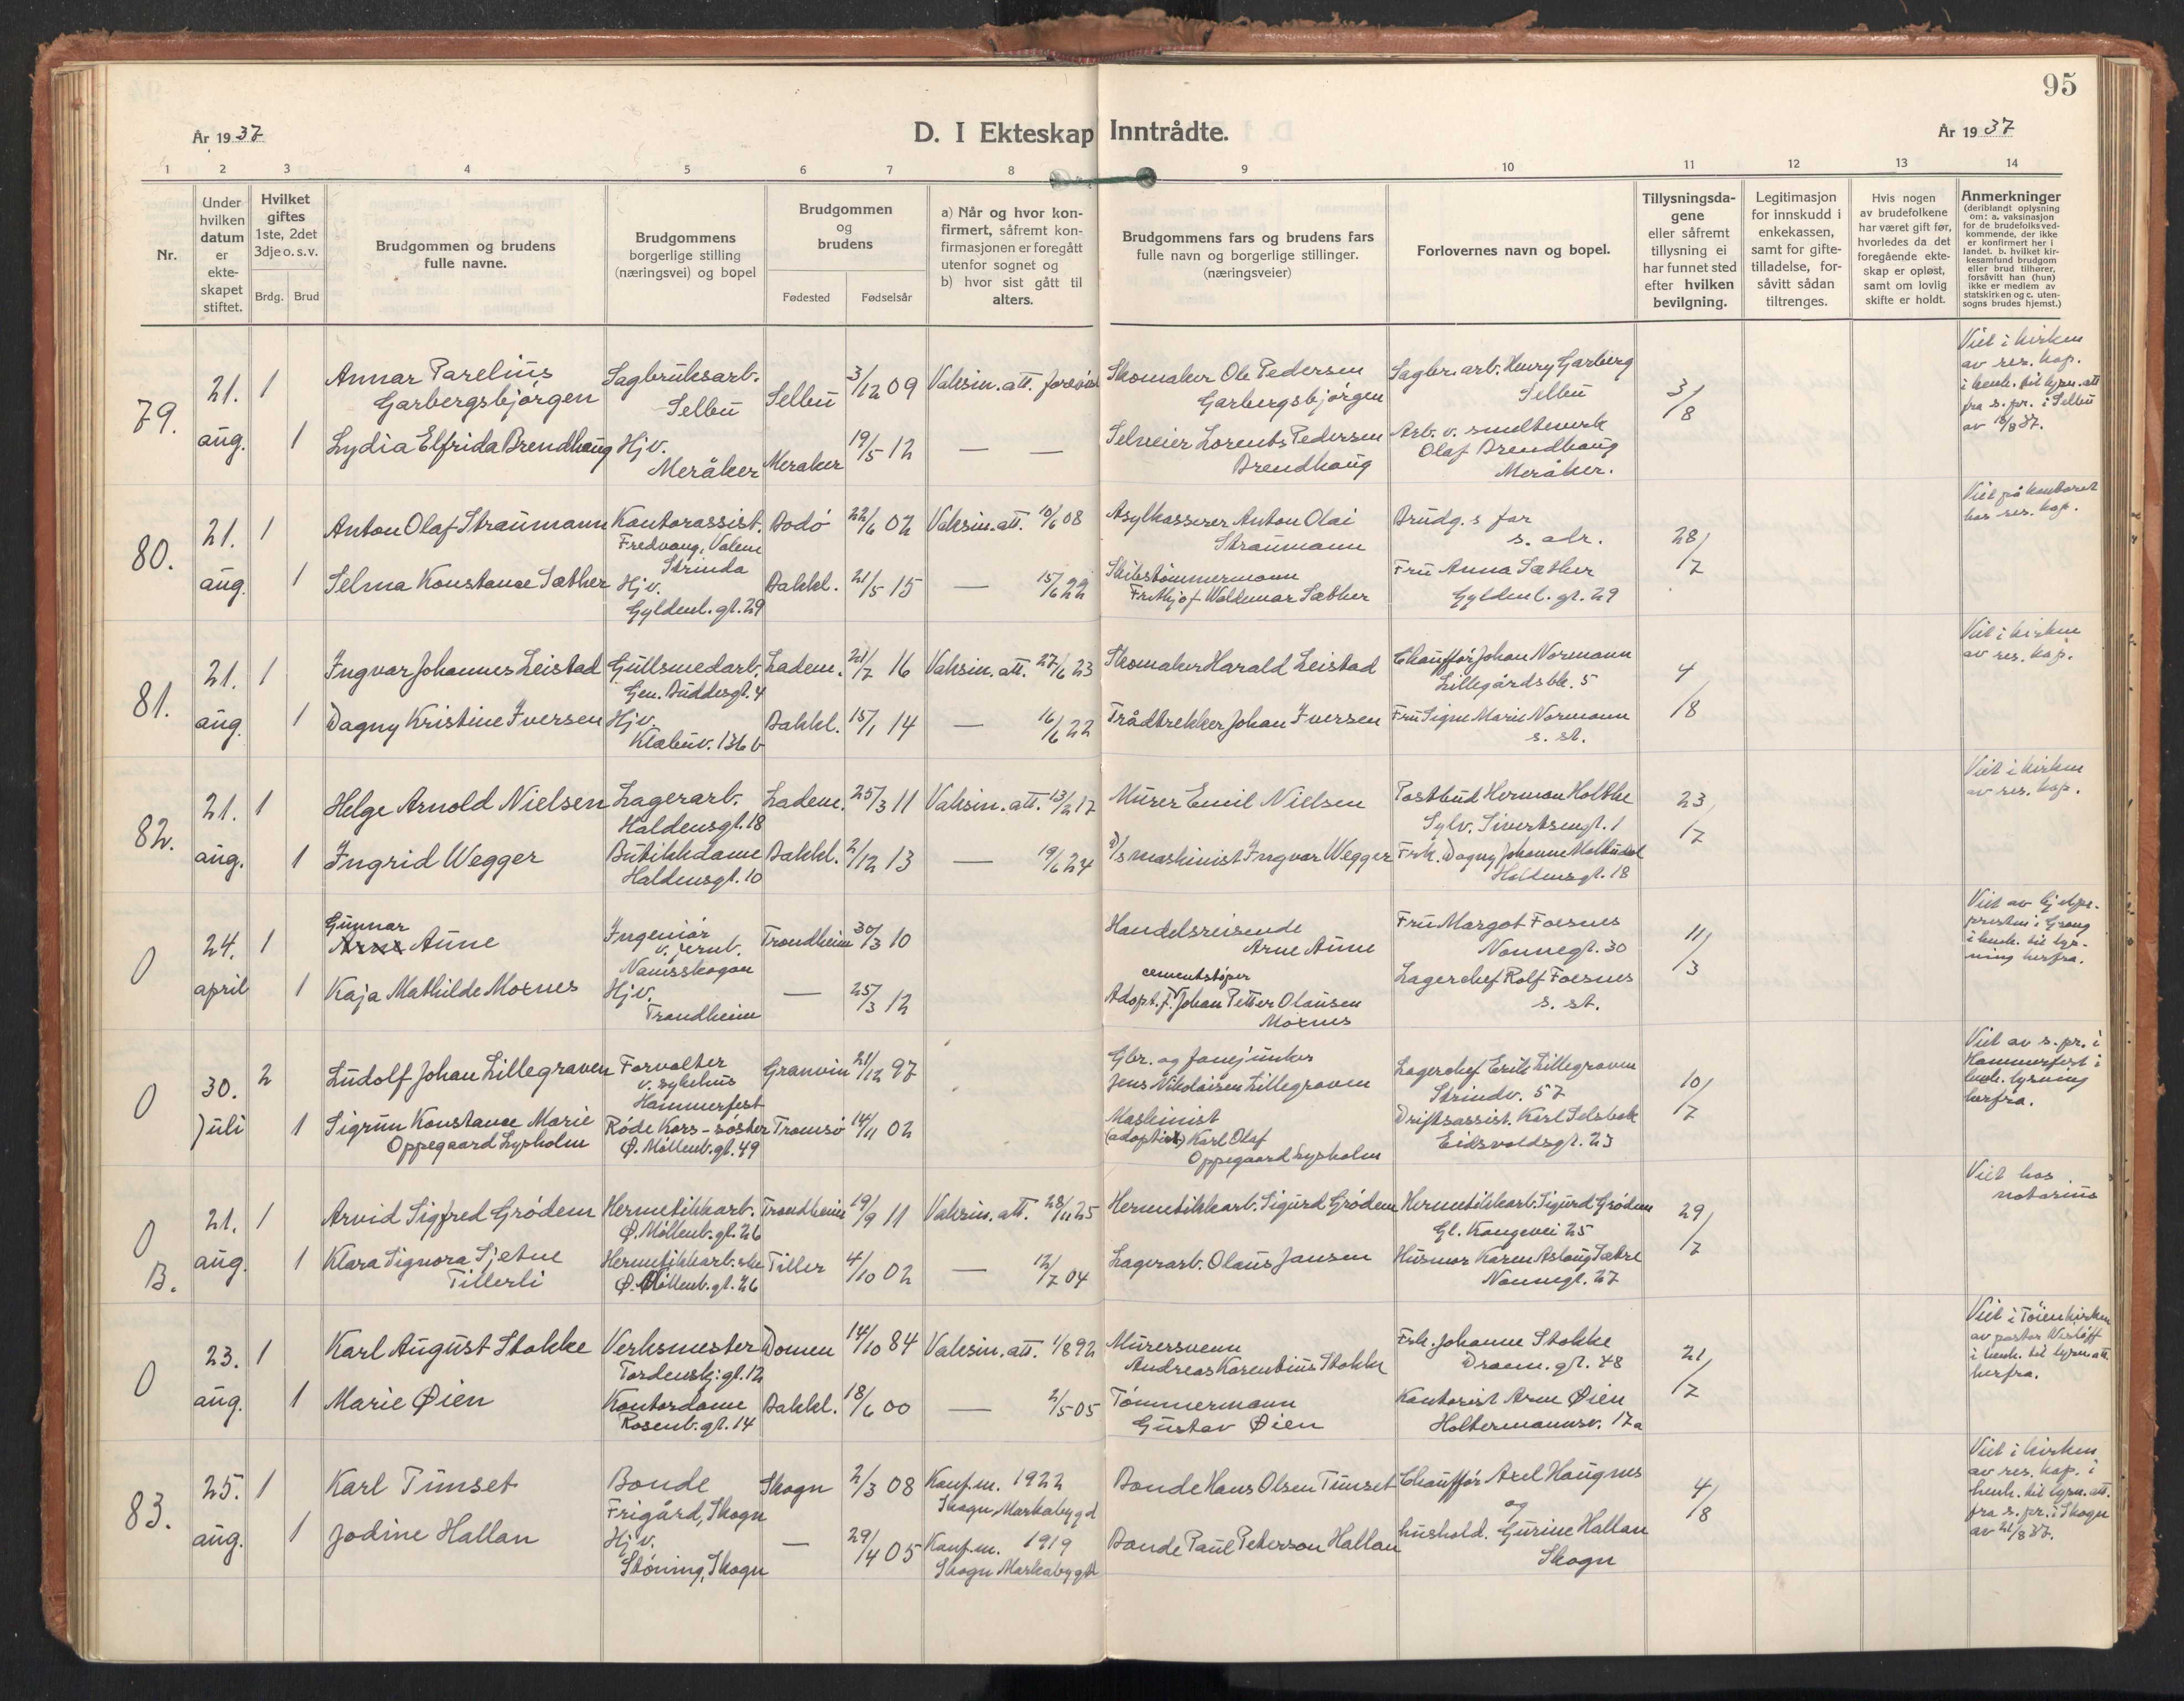 95
År 1937
D. I Ekteskap Inntrådte.
År 1937
1 2 3 4 5 6 7 8 9 10 11 12 13 14
Nr.
Under hvilken datum er ekte-skapet stiftet.
Hvilket giftes 1ste, 2det 3dje o. s. v.
Brdg. Brud
Brudgommen og brudens fulle navne.
Brudgommens borgerlige stilling (næringsvei) og bopel
Brudgommen og brudens
Fødested Fødselsår
a) Når og hvor kon-
firmert, såfremt kon-
firmasjonen er foregått
utenfor sognet og
b) hvor sist gått til
alters.
Brudgommens fars og brudens fars
fulle navn og borgerlige stillinger.
(næringsveier)
Forlovernes navn og bopel.
Tillysningsda-
gene
eller såfremt
tillysning ei
har funnet sted
efter hvilken
bevilgning.
Legitimasjon
for innskudd i
enkekassen,
samt for gifte-
tilladelse, for-
såvitt sådan
tiltrenges.
Hvis nogen
av brudefolkene
har været gift før,
hvorledes da det
foregående ekte-
skap er opløst,
samt om lovlig
skifte er holdt.
Anmerkninger
(deriblandt oplysning
om: a. vaksinasjon
for de brudefolksved-
kommende, der ikke
er konfirmert her i
landet. b. hvilket kir-
kesamfund brudgom
eller brud tilhører,
forsåvitt han (hun)
ikke er medlem av
statskirken og c. uten-
sogns brudes hjemst.)
79. 21. aug.
1 Annar Parelius Garbergsbjørgen
Sagbruksarb. Selbu
Selbu 3/12 09 Vaksin. att. forevist
Skomaker Ole Pedersen Garbergsbjørgen
Sagbr.arb. Henry Garberg Selbu
3/8
Viet i kirken
av res. kap.
i henh. til lysn. att
fra s. pr. i Selbu
av 18/8 37.
1 Lydia Elfrida Brendhaug
Hjv. Meråker
Meraker 19/5 12 — —
Selveier Lorents Pedersen Brendhaug
Arb. v. smelteverk
Olaf Brendhaug
Meråker.
80. 21. aug.
1 Anton Olaf Straumann
Kontorassist.
Fredvang, Valene
Strinda
Bodø 22/6 02 Vaksin. att. 10/6 08
Asylkasserer Anton Olai Straumann
Brudg.s far s. adr.
28/7
Viet på kontoret
hos res. kap.
1 Selma Konstance Sæther
Hjv.
Gyldenl. gt. 29
Bakkl. 21/5 15 — 15/6 22
Skibstømmermann
Frithjof Waldemar Sæther
Fru Anna Sæther
Gyldenl. gt. 29
81. 21. aug.
1 Ingvar Johannes Leistad
Gullsmedarb.
Gen. Buddesgt. 4
Ladem. 21/7 16 Vaksin. att. 27/6 23
Skomaker Harald Leistad
Chauffør Johan Normann
Lillegårdsbk. 5
4/8
Viet i kirken
av res. kap.
1 Dagny Kristine Iversen
Hjv.
Klæbuv. 136 b
Bakkl. 15/1 14 — 16/6 22
Trådtrekker Johan Iversen
Fru Signe Marie Normann
s. st.
82. 21. aug.
1 Helge Arnold Nielsen
Lagerarb.
Haldensgt. 18
Ladem. 25/3 11 Vaksin. att. 13/2 17
Murer Emil Nielsen
Postbud Herman Holthe
Sylv. Sivertsengt. 1
23/7
Viet i kirken
av res. kap.
1 Ingrid Wegger
Butikkdame
Haldensgt. 10
Bakkl. 2/12 13 — 19/6 24
D/s maskinist Ingvar Wegger
Frk. Dagny Johanne
Haldensgt. 18
0 24. april
1 Gunnar
Arne Aune
Ingeniør
v. jernb.
Namsskogan
Trondheim 30/3 10
Handelsreisende
Arne Aune
Fru Margot Foesnes
Nonnegt. 30
11/3
Viet av hjelpe-
presten i Grong
i henh. til lys-
ning herfra.
1 Kaja Mathilde Moxnes
Hjv.
Trondheim
— 25/3 12
cementstøper
Adopt. f. Johan Petter Olausen
Moxnes
Lagerchef Rolf Foesnes
s. st.
0 30. juli
2 Ludolf Johan Lillegraven
Forvalter
v. sykehus
Hammerfest
Granvin 21/12 97
Gbr. og fanejunker
Jens Nikolaisen Lillegraven
Lagerchef Erik Lillegraven
Strindv. 57
10/7
Viet av s. pr. i
Hammerfest i
henh. lysning
herfra.
1 Sigrun Konstance Marie
Oppegaard Lysholm
Røde Kors-søster
Ø. Møllenb. gt. 49
Tromsø 14/11 02
Maskinist
(adoptiv) Karl Olaf
Oppegaard Lysholm
Driftsassist. Karl Selsbak
Eidsvoldsgt. 23
0 B. 21. aug.
1 Arvid Sigfred Grødem
Hermetikkarb.
Ø. Møllenb. gt. 26
Trondheim 19/9 11 Vaksin. att. 28/11 25
Hermetikkarb. Sigurd Grødem
Hermetikkarb. Sigurd Grødem
Gl. Kongevei 25
29/7
Viet hos
notarius
1 Klara Signora Sjetne
Tillerli
Hermetikkarb.ske
Ø. Møllenb. gt. 26
Tiller 4/10 02 — 12/7 04
Lagerarb. Olaus Jansen
Husmor Karen Aslaug Sætre
Nonnegt. 27
0 23. aug.
1 Karl August Stokke
Verksmester
Tordenskj. gt. 12
Domen 14/10 84 Vaksin. att. 1/8 92
Murersvenn
Andreas Korentius Stokke
Frk. Johanne Stokke
Dronn. gt. 48
21/7
Viet i Tøienkirken
av pastor Wisløff
i henh. til lysn. att.
herfra.
1 Marie Øien
Kontordame
Rosenb. gt. 14
Bakkl. 18/6 00 — 2/5 05
Tømmermann
Gustav Øien
Kontorist Arne Øien
Holtermannsv. 17a
83. 25. aug.
1 Karl Tunset
Bonde
Frigård, Skogn
Skogn 2/3 08 Konf.m. 1922
Skogn, Markabygd
Bonde Hans Olsen Tunset
Chauffør Axel Haugnes
og
4/8
Viet i kirken
av res. kap. i
henh. til lysn. att.
fra s. pr. i Skogn
av 21/8 37.
1 Jodine Hallan
Hjv.
Støning, Skogn
— 29/4 05 Konf.m. 1919
Skogn Markabygd
Bonde Paul Peterson Hallan
hushold. Gurine Hallan
Skogn